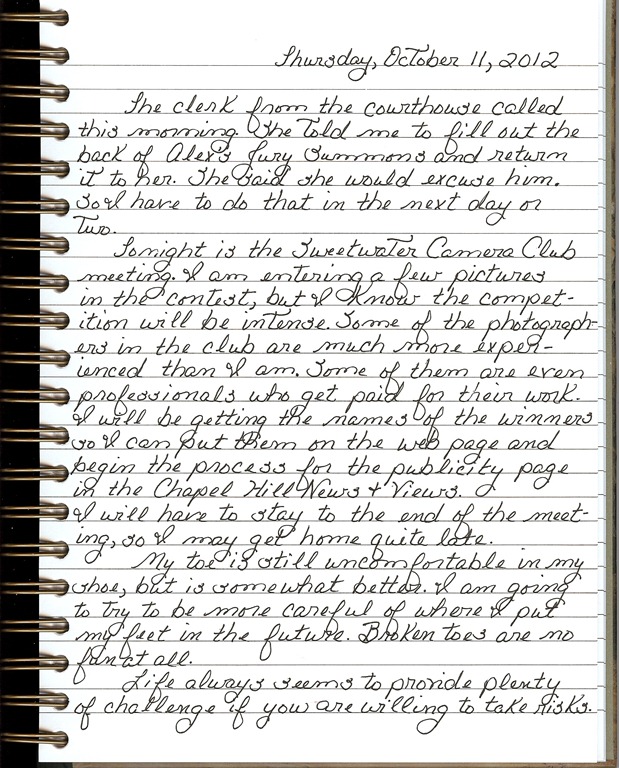 Thursday, October 11, 2012
The clerk from the courthouse called
this morning. She told me to fill out the
back of Alex's Jury Summons and return
it to her. She said she would excuse him.
So I have to do that in the next day or
two.
Tonight is the Sweetwater Camera Club
meeting. I am entering a few pictures
in the contest, but I know the compet-
ition will be intense. Some of the photograph-
ers in the club are much more exper-
ienced than I am. Some of them are even
professionals who get paid for their work.
I will be getting the names of the winners
so I can put them on the web page and
begin the process for the publicity page
in the Chapel Hill News & Views.
I will have to stay to the end of the meet-
ing, so I may get home quite late.
My toe is still uncomfortable in my
shoe, but is somewhat better. I am going
to try to be more careful of where I put
my feet in the future. Broken toes are no
fun at all.
Life always seems to provide plenty
of challenge if you are willing to take risks.